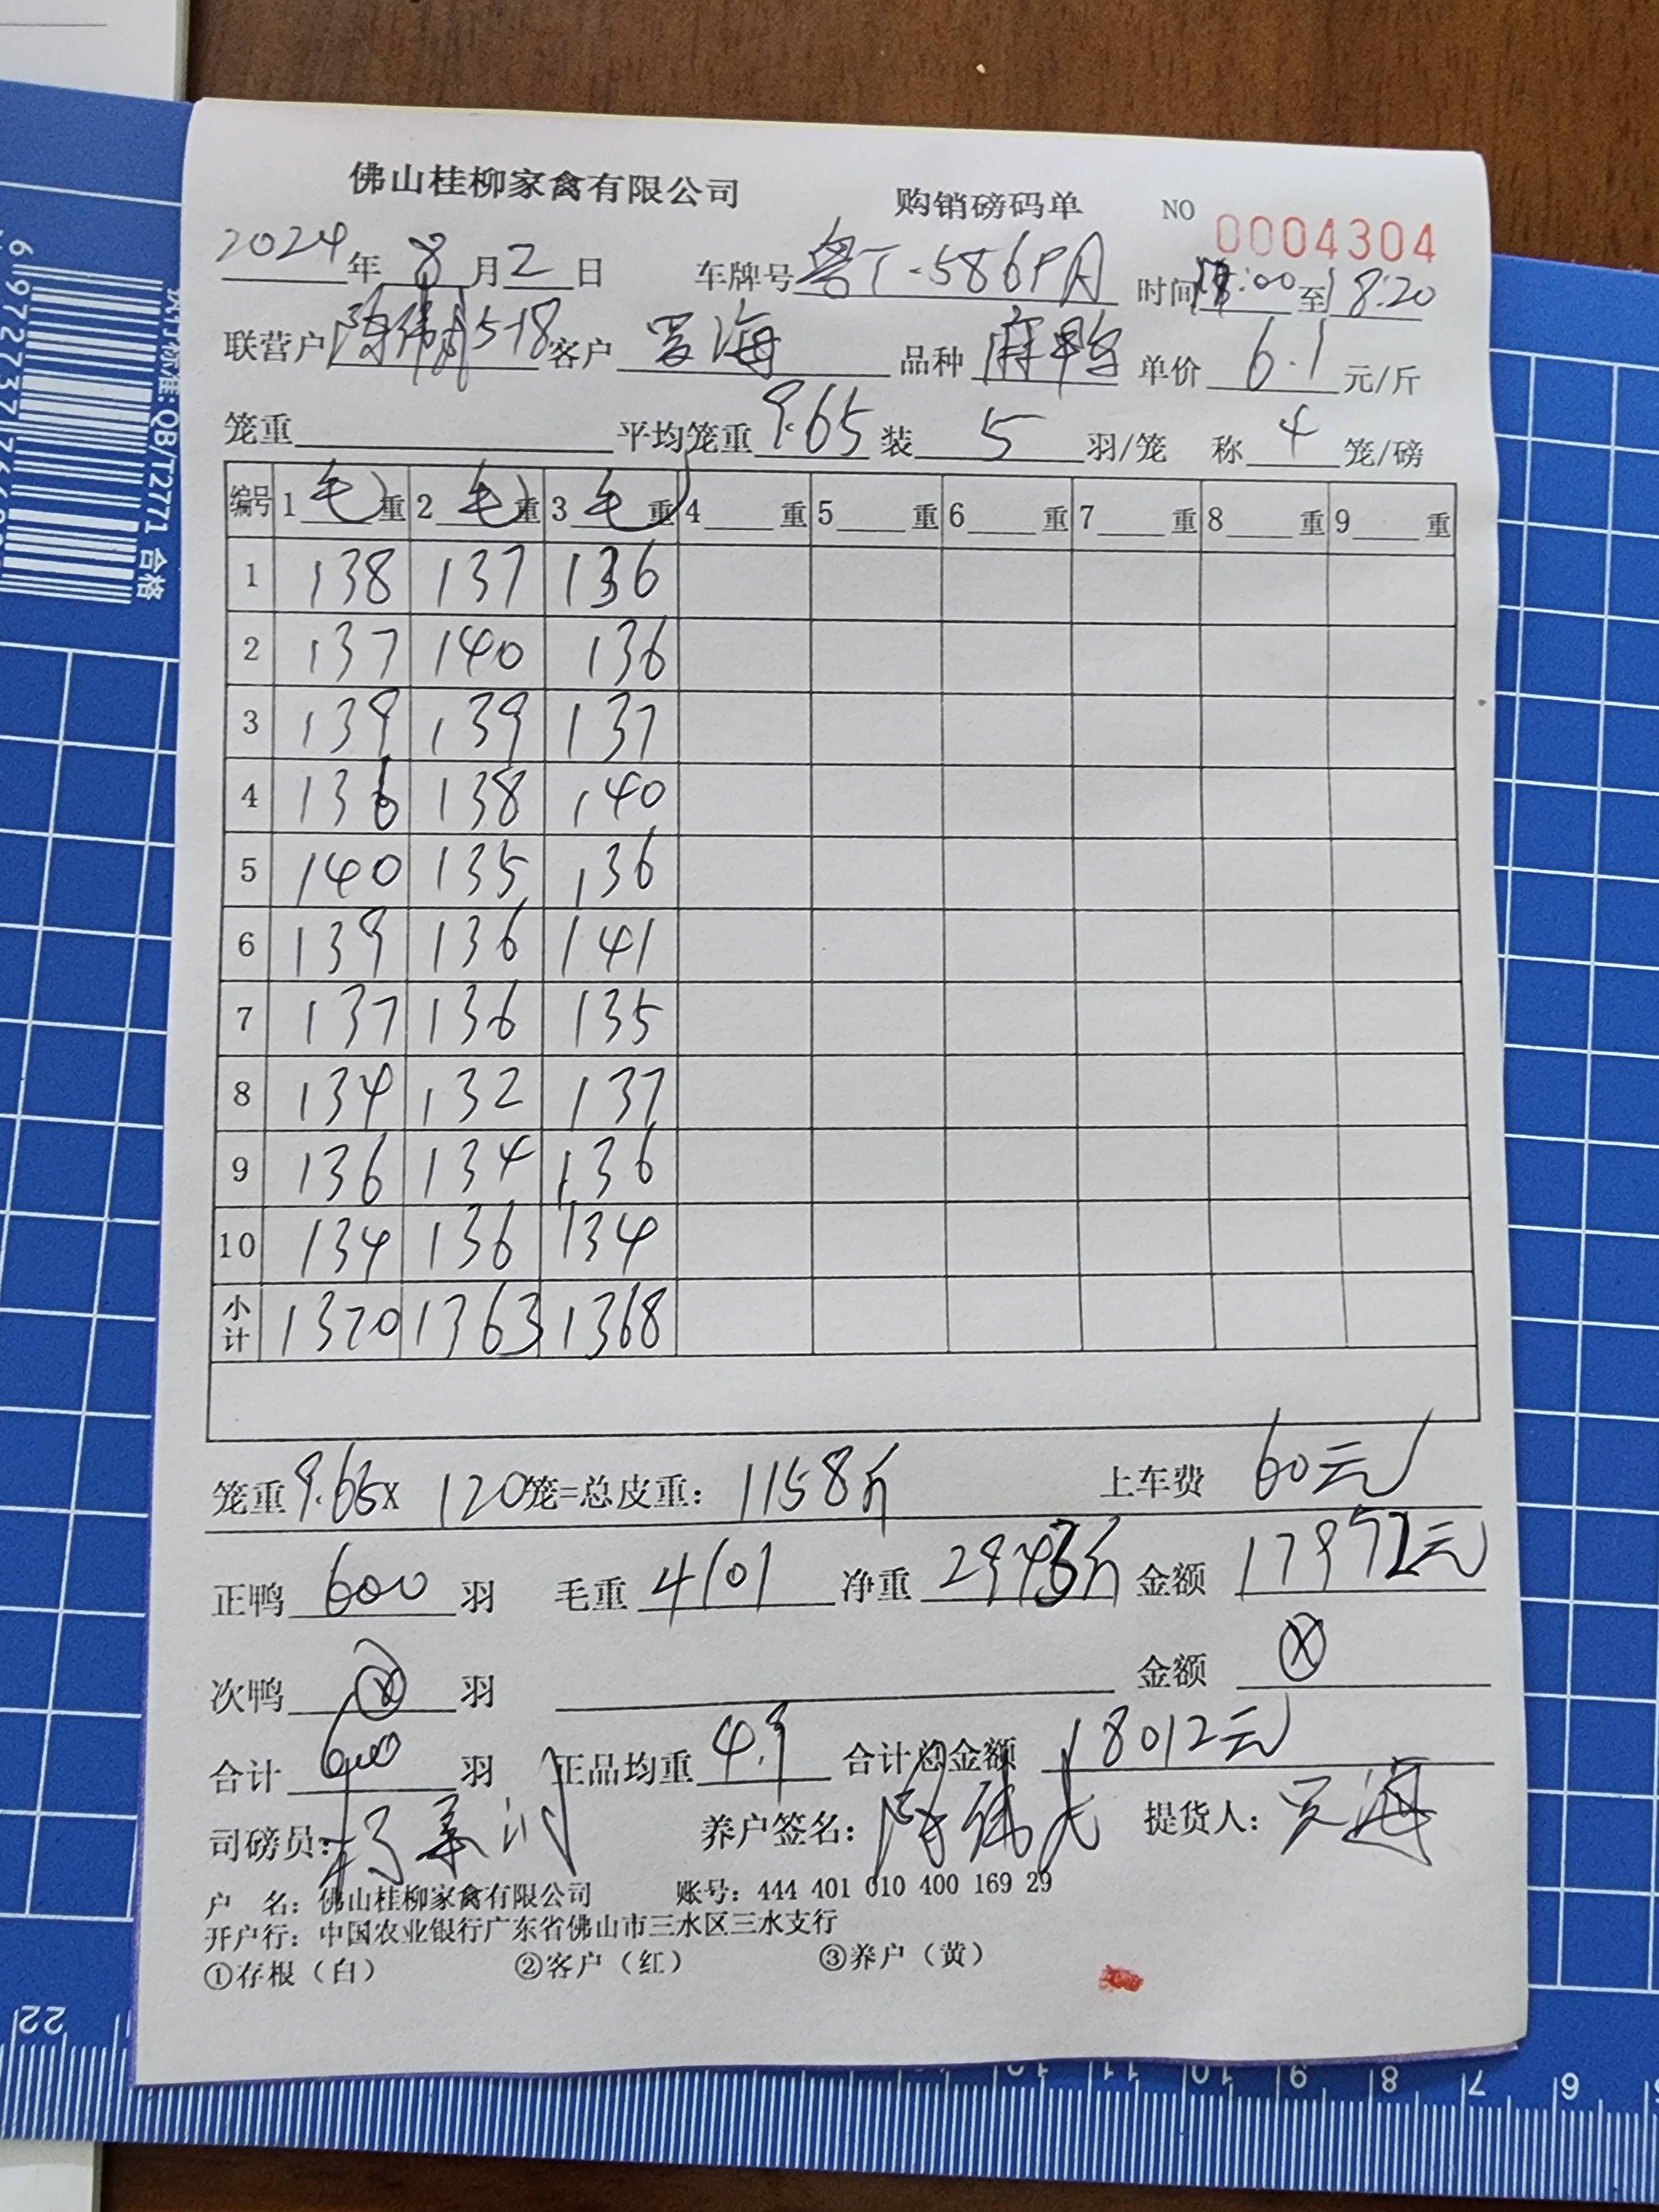 佛山桂柳家禽有限公司 购销磅码单 NO 0004304
2024年 8月2日 车牌号 时间 :00至18:20
联营户 5-18 客户 罗海 品种 麻鸭 单价 6.1 元/斤
笼重 平均笼重 9.65 装 5 羽/笼 称 4 笼/磅
编号 1 毛 重 2 毛 重 3 毛 重 4 重 5 重 6 重 7 重 8 重 9 重
1 138 137 136
2 137 140 136
3 139 139 137
4 136 138 140
5 140 135 136
6 139 136 141
7 137 136 135
8 134 132 137
9 136 134 136
10 134 136 134
小计 1370 1363 1368
笼重 9.65 X 120 笼=总皮重: 1158斤 上车费 60元
正鸭 600 羽 毛重 4101 净重 2943斤 金额 17952元
次鸭 ⓧ 羽 金额 ⓧ
合计 600 羽 正品均重 4.9 合计总金额 18012元
司磅员: 养户签名: 提货人: 罗海
户 名: 佛山桂柳家禽有限公司 账号: 444 401 010 400 169 29
开户行: 中国农业银行广东省佛山市三水区三水支行
①存根(白) ②客户(红) ③养户(黄)
QB/T2771 合格
22
12 11 10 9 8 7 6